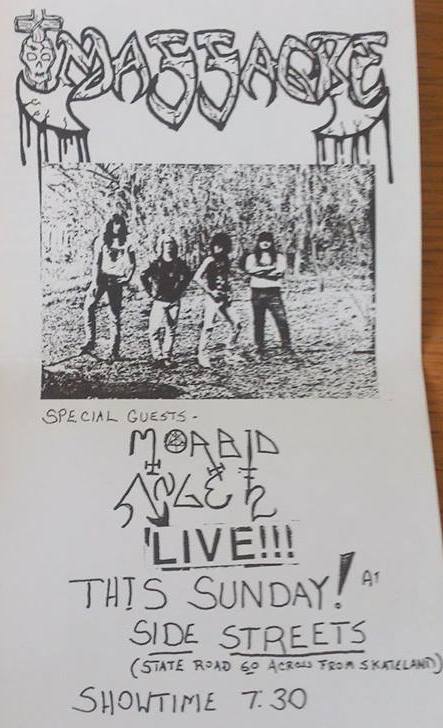 MASSACRE
SPECIAL GUESTS-
MORBID
ANGEL
'LIVE!!!
THIS SUNDAY! AT
SIDE STREETS
(STATE ROAD 60 ACROSS FROM SKATELAND)
SHOWTIME 7:30